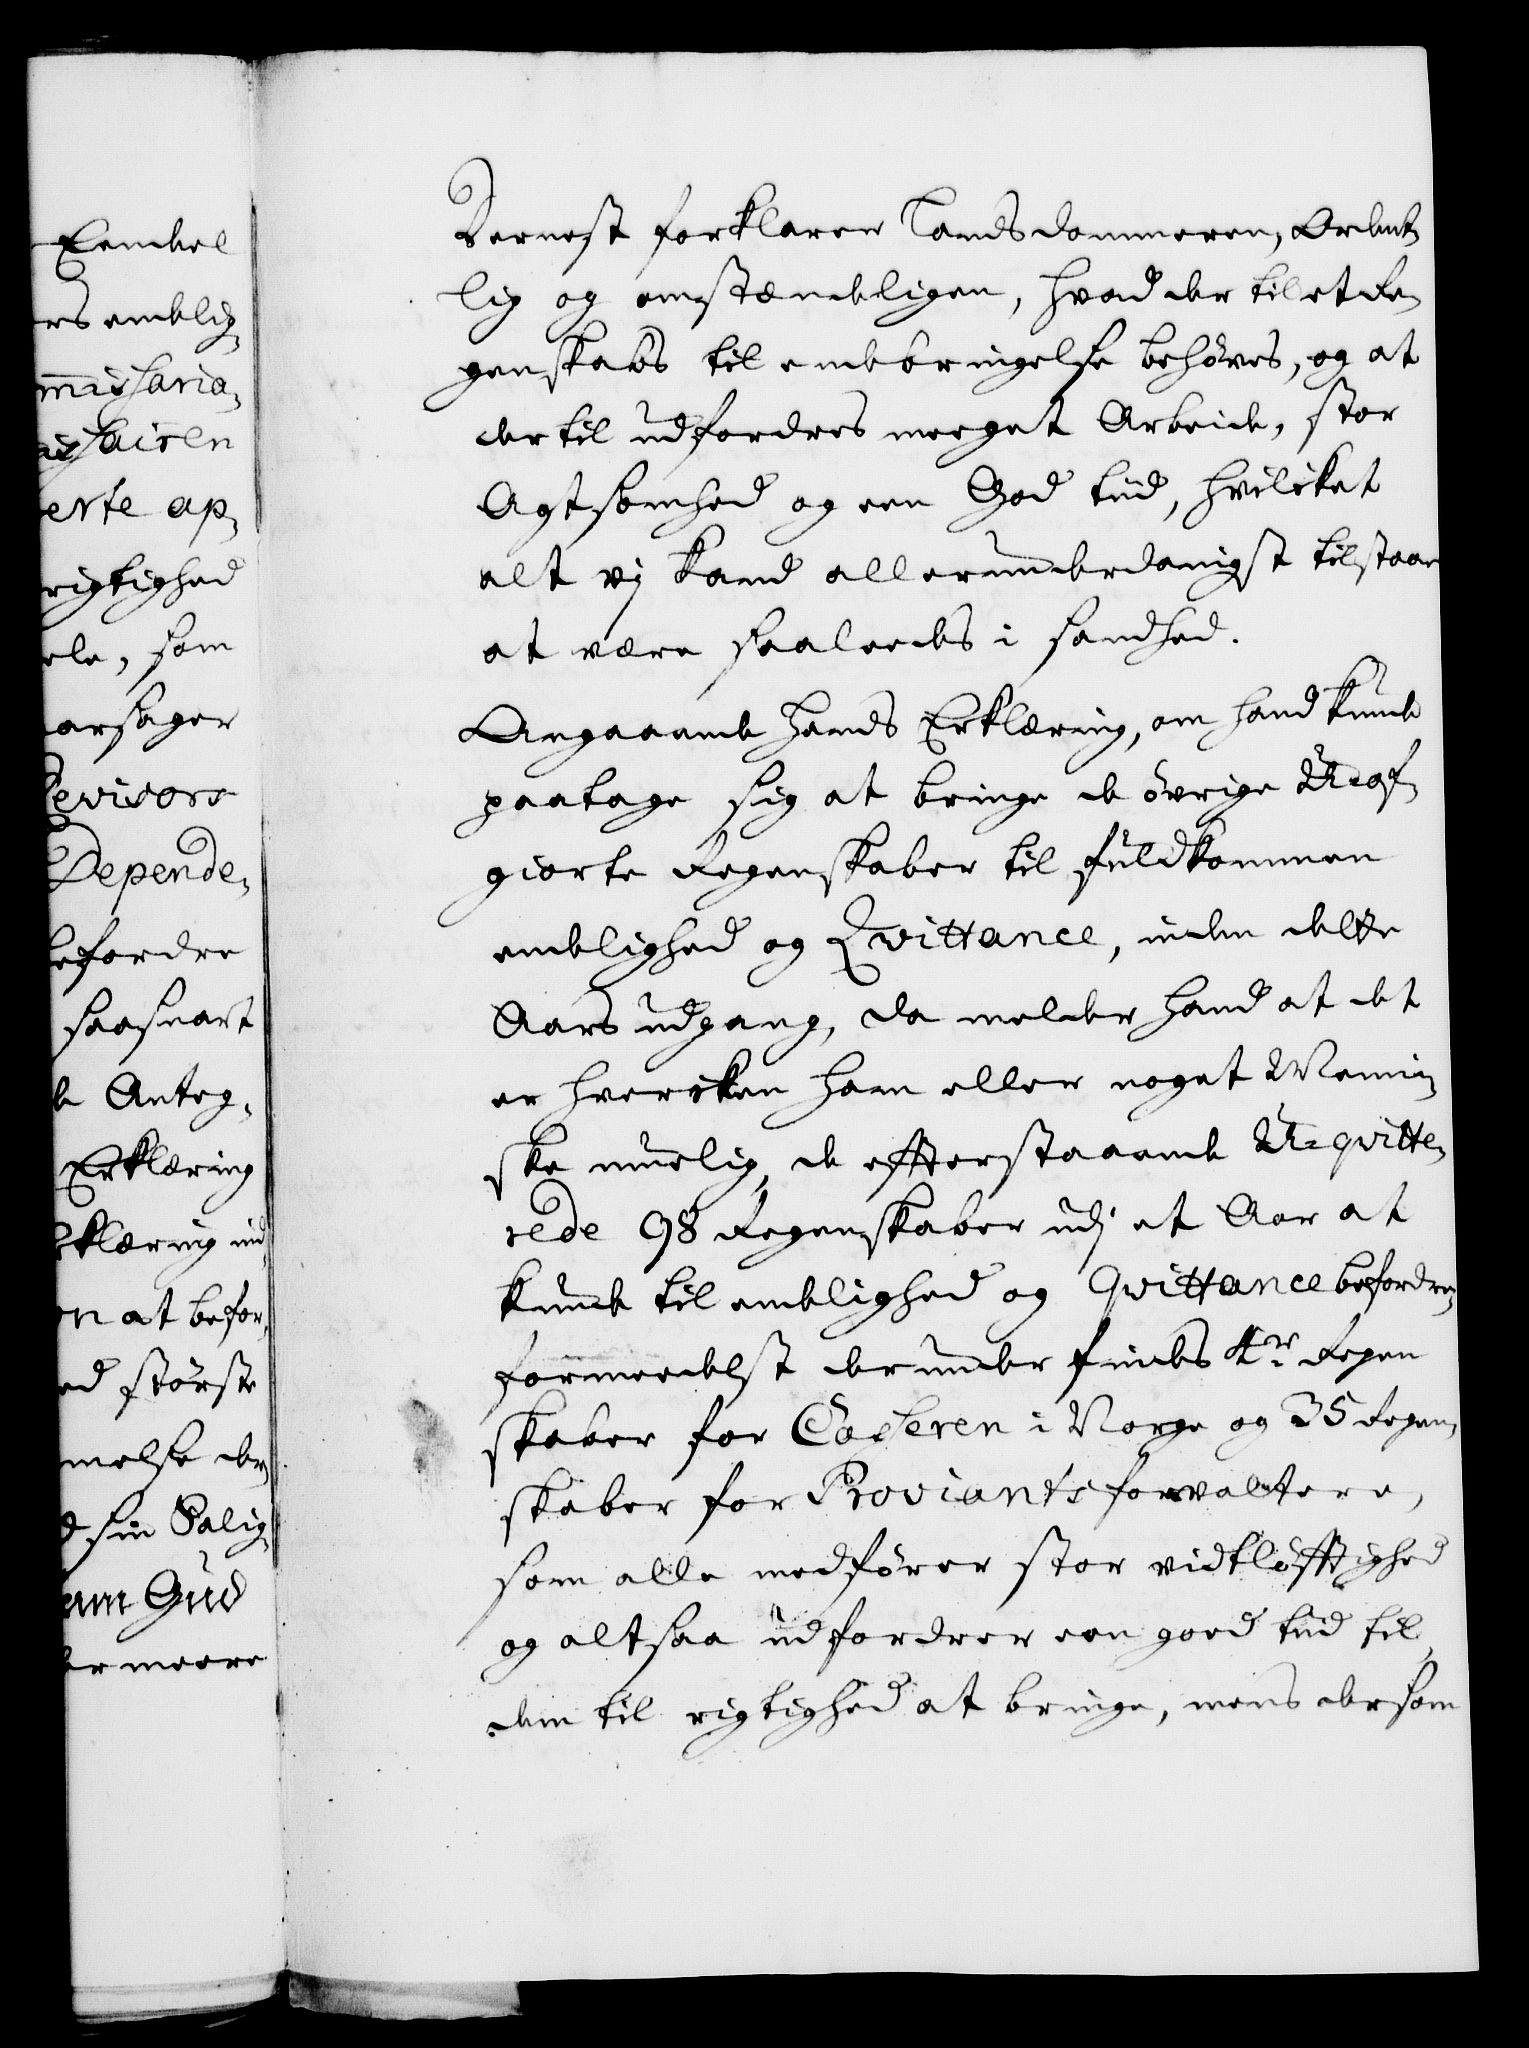 Eendeel
rs endelig
mmissaria-
issairen
erte ap-
rigtighed
ele, som
aarsager
Revisors
Depende-
befordre
saasnart
de Anteg-
Erklæring
rklæring ind
en at befor-
ed største
melse der
d sin Salig-
am Gud
er meere
Dernest forklarer Landsdommeren, Ordent-
lig og omstændeligen, hvad der til et Re-
genskabs til endebringelse behøves, og at
der til udfordres meeget Arbeide, stor
Agtsomhed og een God tiid, hvilcket
alt vj kand allerunderdanigst tilstaae
at være saaledes i sandhed.
Angaaende hands Erklæring, om hand kunde
paatage sig at bringe de øvrige Uaf-
giorte Regenskaber til fuldkommen
endelighed og Qvittance, inden dette
Aars udgang, da melder hand at det
er hvercken ham eller noget Menni-
ske muelig, de effterstaaende Uqvitte-
rede 98 Regenskaber udj et Aar at
kunde til endelighed og Qvittance befordre,
formeedelst derunder findes 4r Regen
skaber for Casseren i Norge og 35 Regen-
skaber for Proviantsforvaltere,
som alle medfører stor vidtløfftighed
og altsaa udfordrer een goed tiid til,
dem til rigtighed at bringe, mens dersom